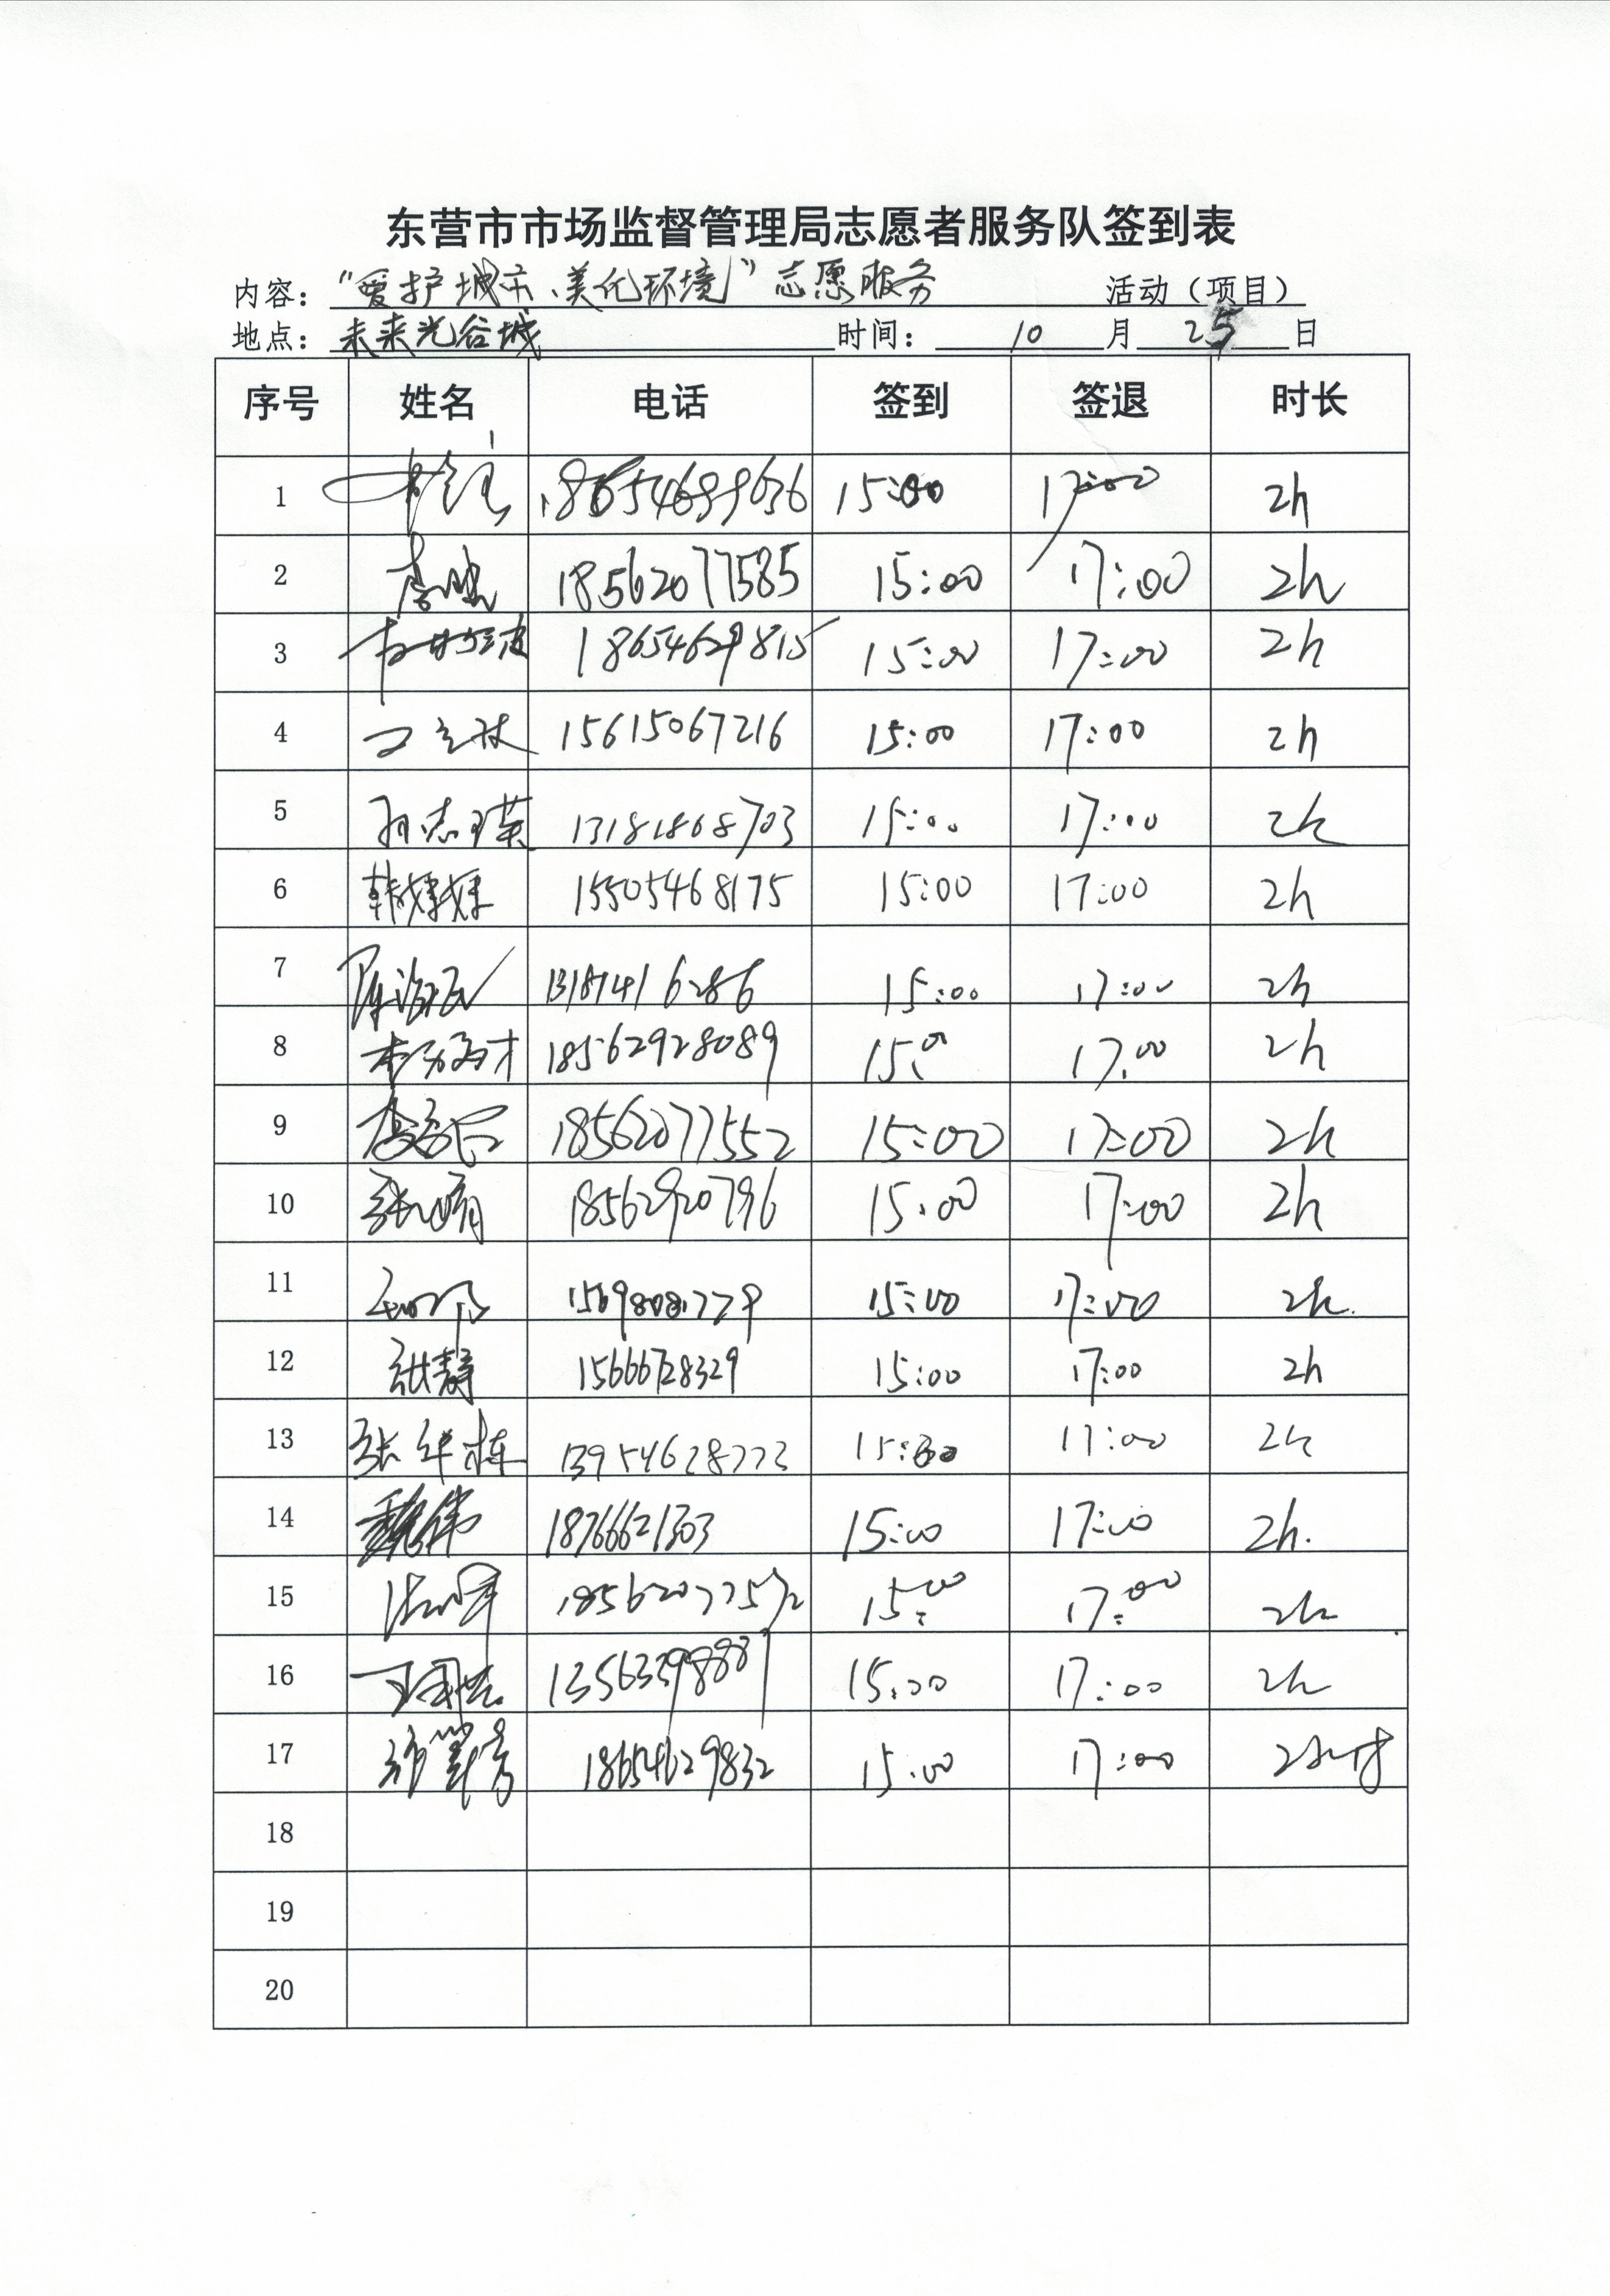 东营市市场监督管理局志愿者服务队签到表
内容：“爱护城市、美化环境”志愿服务 活动（项目）
地点：未来光谷城 时间：10月25日
序号 姓名 电话 签到 签退 时长
1 18654689636 15:00 17:00 2h
2 18562077585 15:00 17:00 2h
3 18654629815 15:00 17:00 2h
4 15615067216 15:00 17:00 2h
5 13181868703 15:00 17:00 2h
6 韩媒媒 15505468175 15:00 17:00 2h
7 13181416286 15:00 17:00 2h
8 18562928089 15:00 17:00 2h
9 18562077552 15:00 17:00 2h
10 18562920796 15:00 17:00 2h
11 15:00 17:00 2h.
12 张静 15666728329 15:00 17:00 2h
13 张华栋 15:00 17:00 2h
14 魏伟 18766621303 15:00 17:00 2h.
15 18562077572 15:00 17:00 2h
16 15:00 17:00 2h
17 18654629832 15:00 17:00 2小时
18
19
20